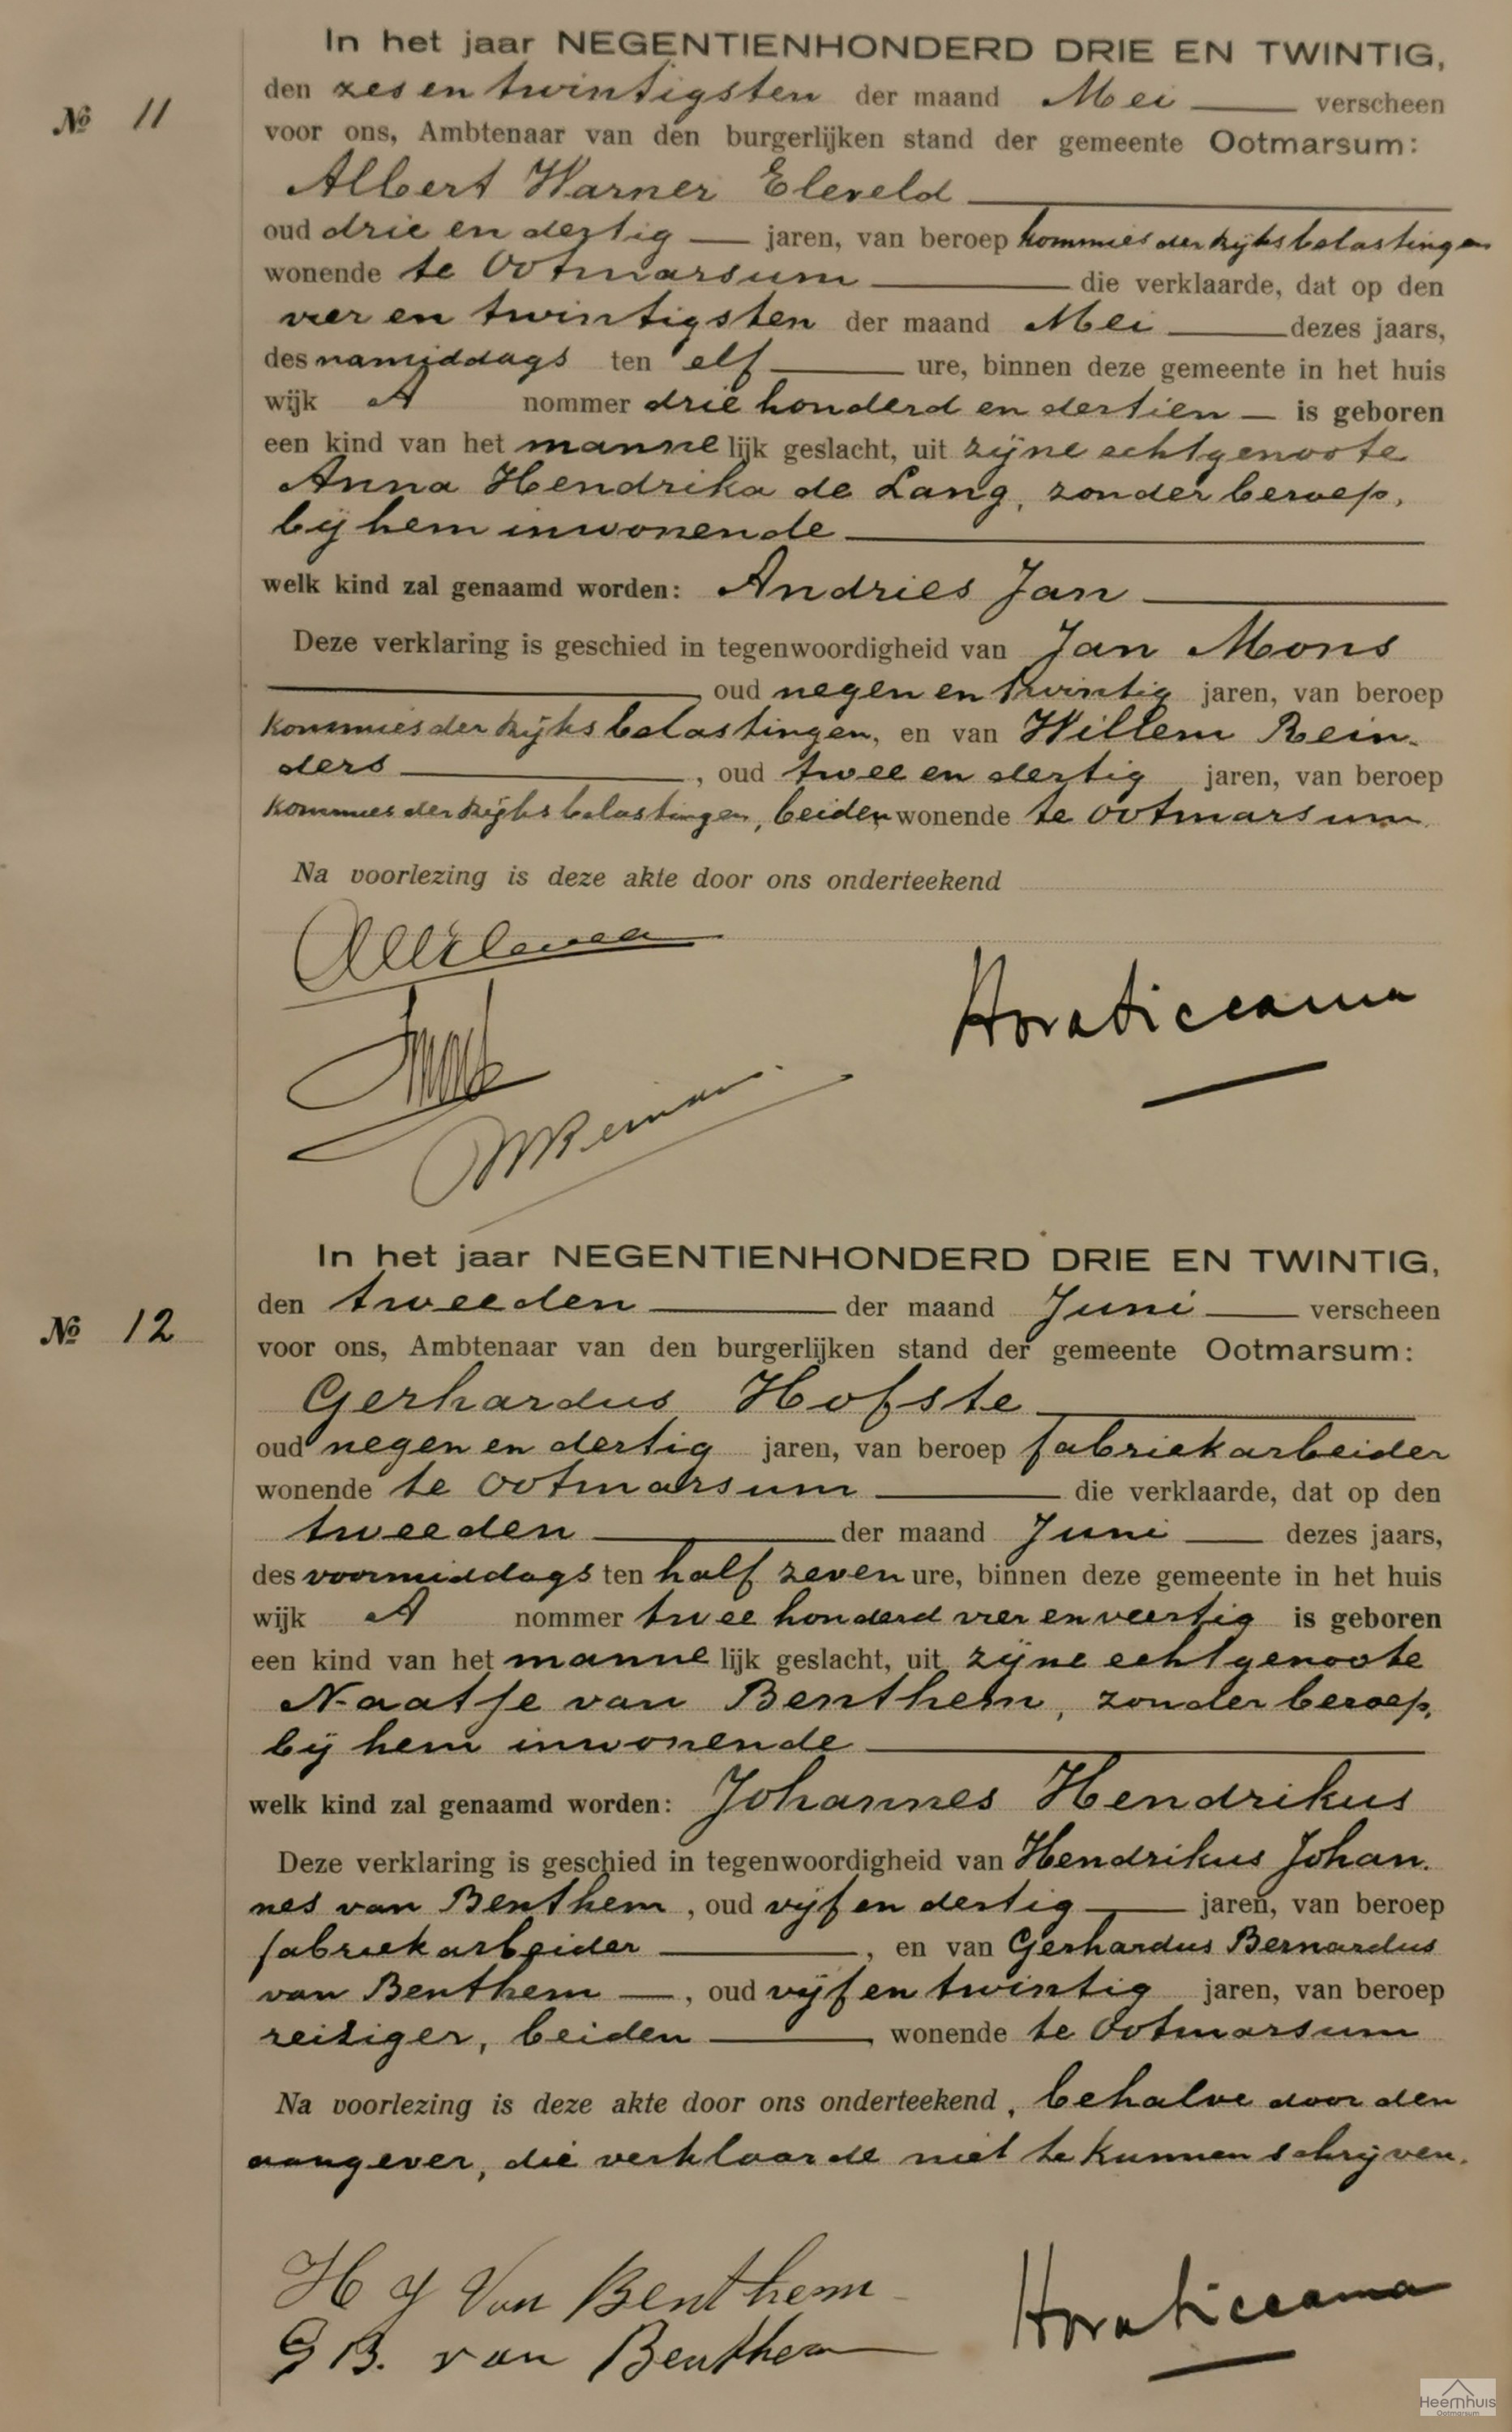 In het jaar NEGENTIENHONDERD DRIE EN TWINTIG,
den zes en twintigsten der maand Mei verscheen
№ 11
voor ons, Ambtenaar van den burgerlijken stand der gemeente Ootmarsum:
Albert Warner Eleveld
oud drie en dertig jaren, van beroep kommies der rijks belastingen
wonende te Ootmarsum die verklaarde, dat op den
vier en twintigsten der maand Mei dezes jaars,
des namiddags ten elf ure, binnen deze gemeente in het huis
wijk A nommer drie honderd en dertien — is geboren
een kind van het mannelijk geslacht, uit zijne echtgenoote
Anna Hendrika de Lang, zonder beroep,
bij hem inwonende
welk kind zal genaamd worden: Andries Jan
Deze verklaring is geschied in tegenwoordigheid van Jan Mons
, oud negen en twintig jaren, van beroep
kommies der rijks belastingen, en van Willem Rein-
ders , oud twee en dertig jaren, van beroep
kommies der rijks belastingen, beiden wonende te Ootmarsum
Na voorlezing is deze akte door ons onderteekend
In het jaar NEGENTIENHONDERD DRIE EN TWINTIG,
den tweeden der maand Juni verscheen
№ 12
voor ons, Ambtenaar van den burgerlijken stand der gemeente Ootmarsum:
Gerhardus Hofste
oud negen en dertig jaren, van beroep fabriekarbeider
wonende te Ootmarsum die verklaarde, dat op den
tweeden der maand Juni dezes jaars,
des voormiddags ten half zeven ure, binnen deze gemeente in het huis
wijk A nommer twee honderd vier en veertig is geboren
een kind van het mannelijk geslacht, uit zijne echtgenoote
Naatje van Benthem, zonder beroep,
bij hem inwonende
welk kind zal genaamd worden: Johannes Hendrikus
Deze verklaring is geschied in tegenwoordigheid van Hendrikus Johan-
nes van Benthem, oud vijf en dertig jaren, van beroep
fabriekarbeider , en van Gerhardus Bernardus
van Benthem —, oud vijf en twintig jaren, van beroep
reiziger, beiden , wonende te Ootmarsum
Na voorlezing is deze akte door ons onderteekend, behalve door den
aangever, die verklaarde niet te kunnen schrijven.
H J Van Benthem
G B. van Benthem
Heemhuis
Ootmarsum